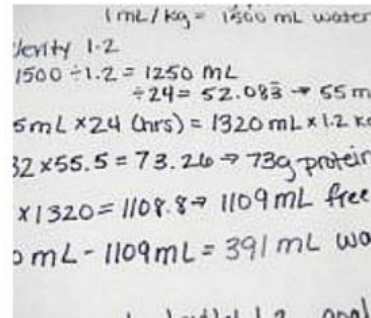 1 mL/kg = 1500 mL water
Jevity 1.2
1500 ÷ 1.2 = 1250 mL
÷ 24 = 52.083̄ → 55 m
5mL × 24 (hrs) = 1320 mL × 1.2 kc
32 × 55.5 = 73.26 → 73g protein
× 1320 = 1108.8 → 1109 mL free
0 mL - 1109 mL = 391 mL wa
1.2 goal